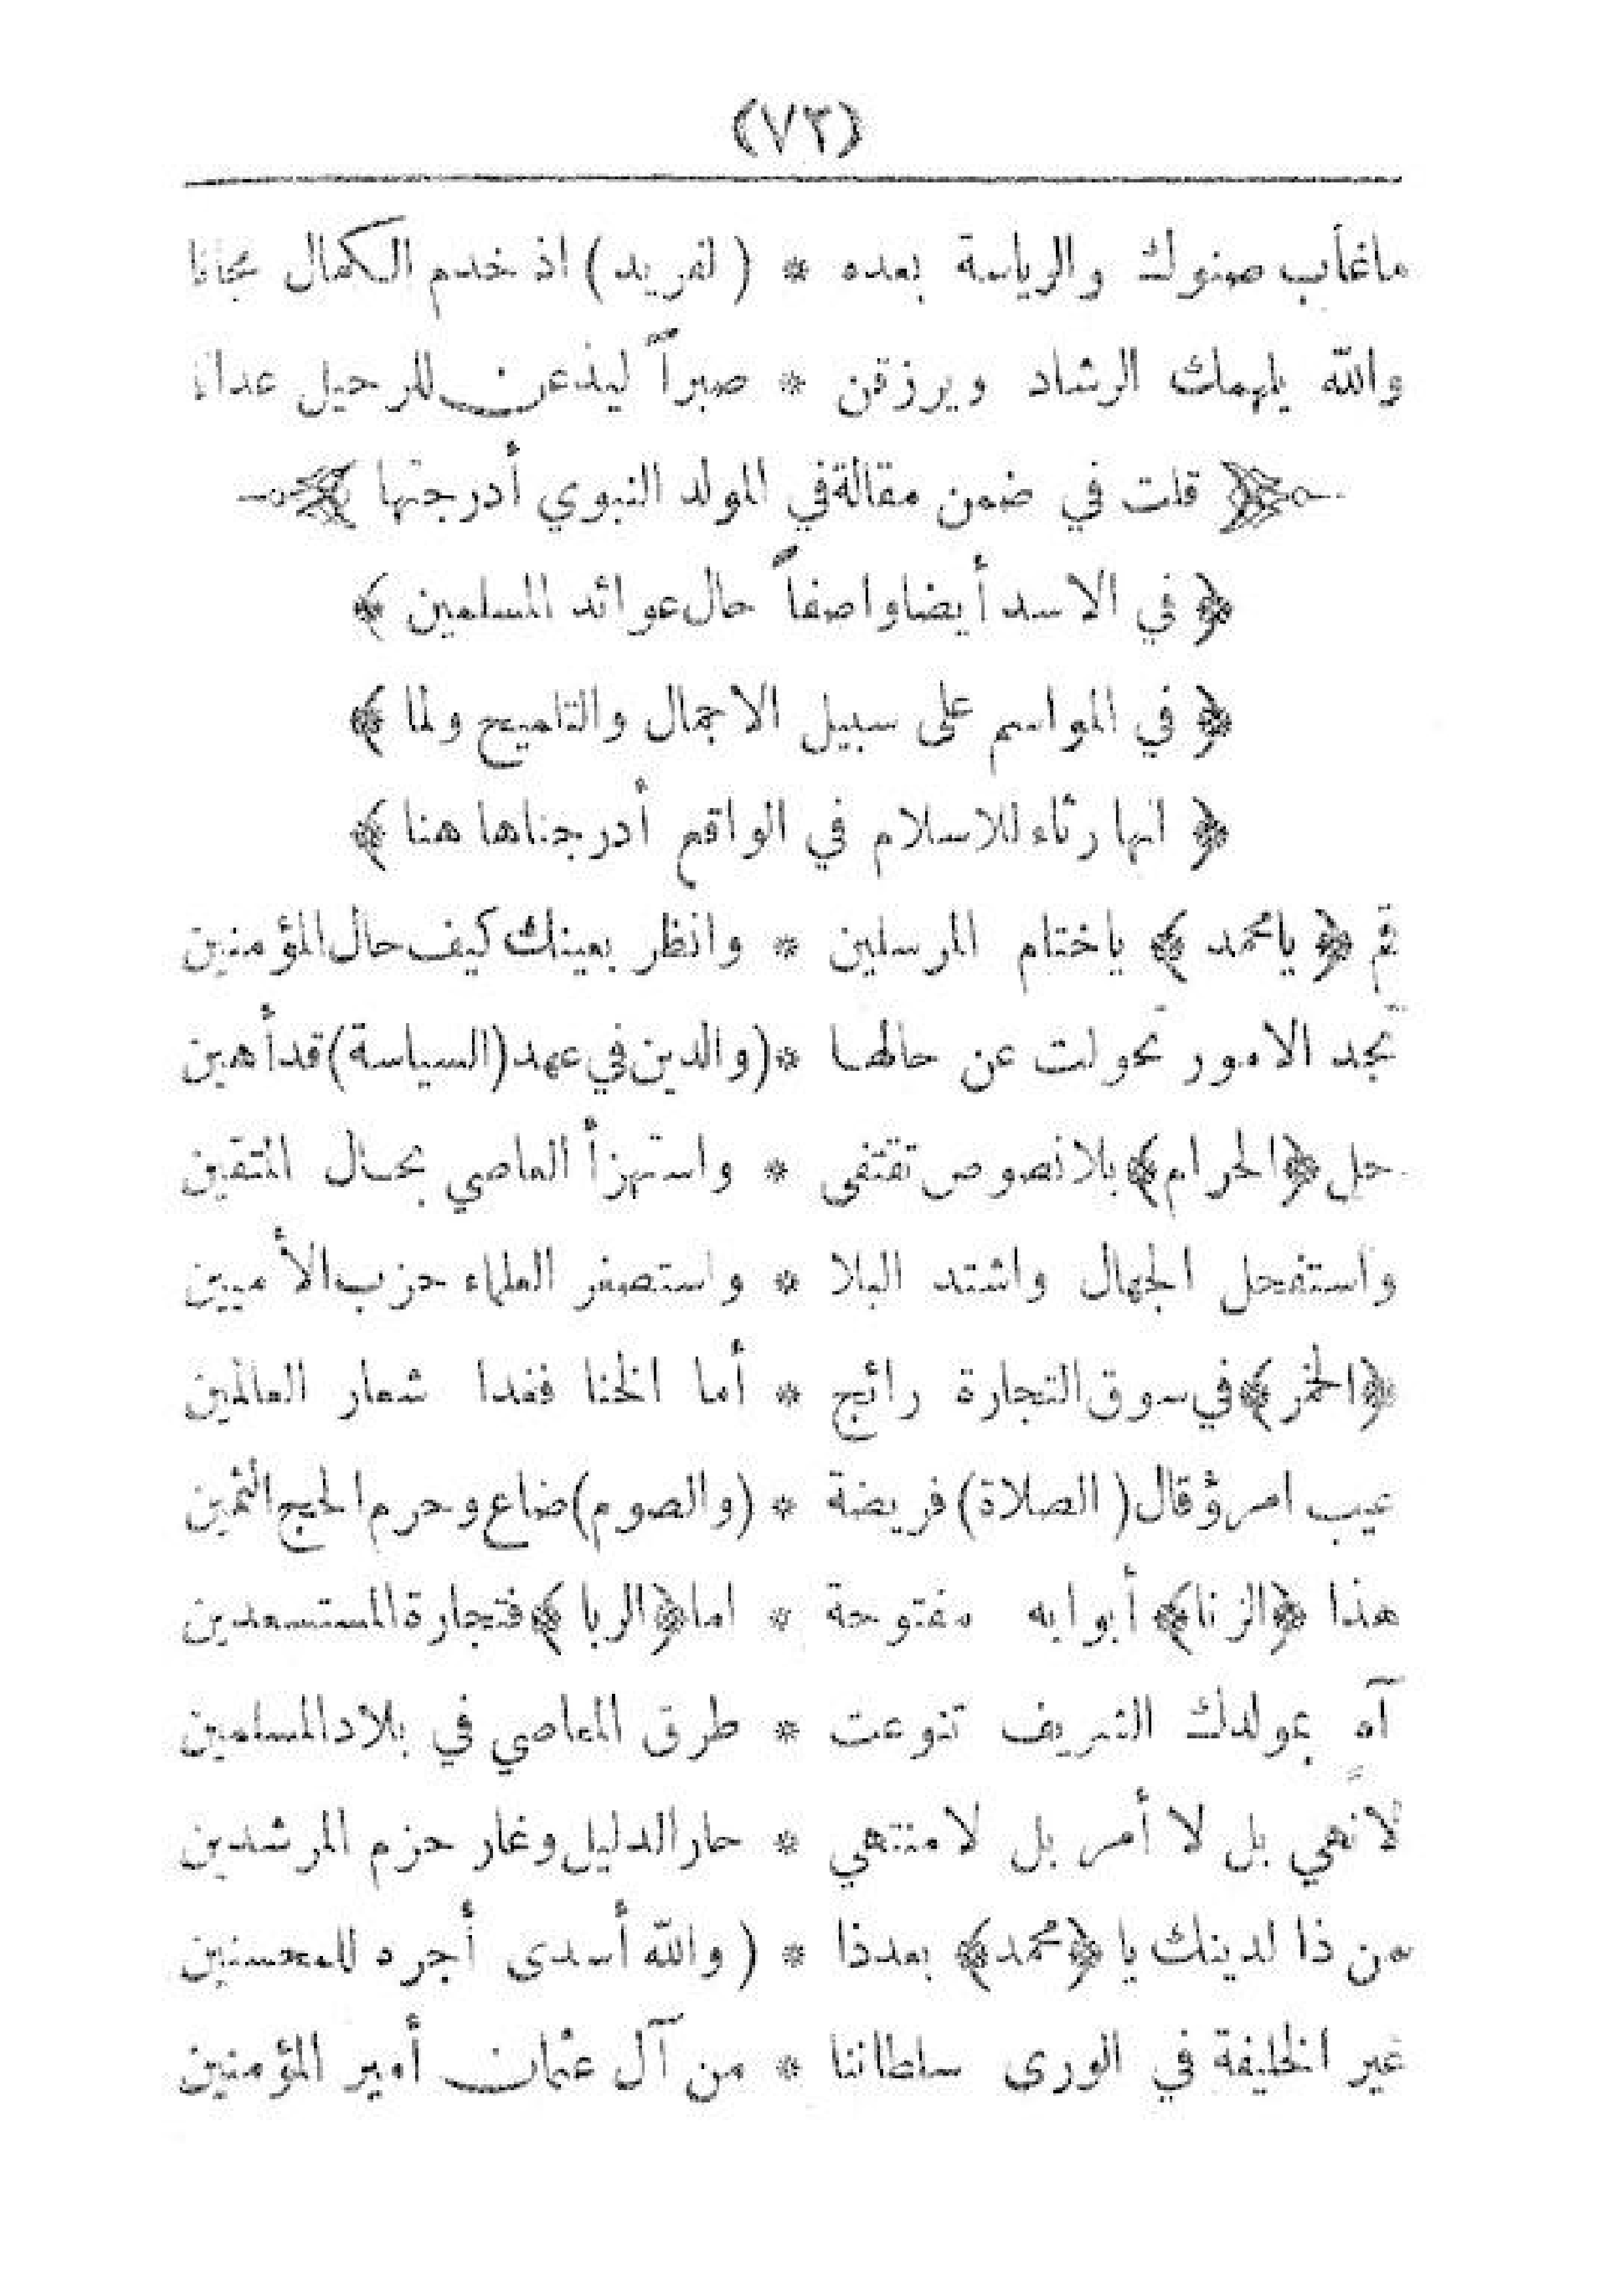 (٧٣)
ماغاب صنوك والرياسة بعده * (لفريد) اذ خدم الكمال مجانا
والله يلهمك الرشاد ويرزقن * صبراً ليذعن للرحيل عدانا
﴿ قلت في ضمن مقالة في المولد النبوي أدرجتها ﴾
﴿ في الاسد أيضا واصفاً حال عوائد المسلمين ﴾
﴿ في المواسم على سبيل الاجمال والتلميح ولما ﴾
﴿ انها رثاء للاسلام في الواقع أدرجناها هنا ﴾
قم ﴿ يامحمد ﴾ ياختام المرسلين * وانظر بعينك كيف حال المؤمنين
تجد الامور تحولت عن حالها * (والدين في عهد (السياسة) قد أهين
حل ﴿الحرام﴾ بلا نصوص تقتفى * واستهزأ العاصي بحال المتقين
واستفحل الجهال واشتد البلا * واستصغر العلماء حزب الأميين
﴿الخمر﴾ في سوق التجارة رائج * أما الخنا فغدا شعار العالمين
عيب امرؤ قال (الصلاة) فريضة * (والصوم) ضاع وحرم الحج الثمين
هذا ﴿الزنا﴾ أبوابه مفتوحة * اما ﴿الربا﴾ فتجارة المستسعدين
آه بمولدك الشريف تنوعت * طرق المعاصي في بلاد المسلمين
لا نهي بل لا أمر بل لا منتهي * حار الدليل وغار حزم المرشدين
من ذا لدينك يا ﴿محمد﴾ بعدذا * (والله أسدى أجره للمحسنين
غير الخليفة في الورى سلطاننا * من آل عثمان أمير المؤمنين